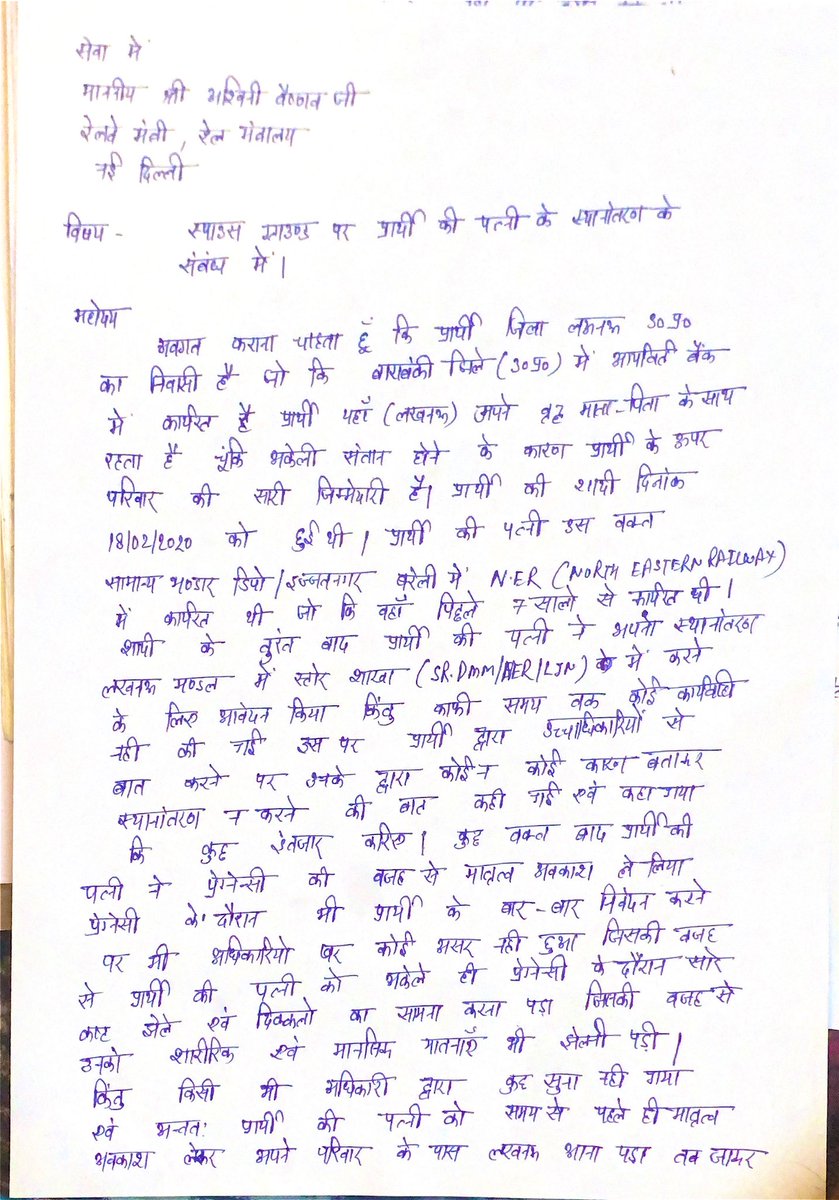 सेवा में
माननीय श्री अश्विनी वैष्णव जी
रेलवे मंत्री, रेल मंत्रालय
नई दिल्ली
विषय - स्पाउस ग्राउण्ड पर प्रार्थी की पत्नी के स्थानांतरण के
संबंध में।
महोदय
अवगत कराना चाहता हूँ कि प्रार्थी जिला लखनऊ उ०प्र०
का निवासी है जो कि बाराबंकी जिले (उ०प्र०) में आर्यावर्त बैंक
में कार्यरत है प्रार्थी यहाँ (लखनऊ) अपने वृद्ध माता-पिता के साथ
रहता है चूंकि अकेली संतान होने के कारण प्रार्थी के ऊपर
परिवार की सारी जिम्मेदारी है। प्रार्थी की शादी दिनांक
18/02/2020 को हुई थी। प्रार्थी की पत्नी उस वक्त
सामान्य भण्डार डिपो/इज्जतनगर बरेली में N.ER (NORTH EASTERN RAILWAY)
में कार्यरत थी जो कि वहाँ पिछले 7 सालो से कार्यरत थी।
शादी के तुरंत बाद प्रार्थी की पत्नी ने अपना स्थानांतरण
लखनऊ मण्डल में स्टोर शाखा (SR.DMM/NER/LJN) में करने
के लिए आवेदन किया किंतु काफी समय तक कोई कार्यवाही
नही की गई उस पर प्रार्थी द्वारा उच्चाधिकारियों से
बात करने पर उनके द्वारा कोई न कोई कारण बताकर
स्थानांतरण न करने की बात कही गई एवं कहा गया
कि कुछ इंतजार करिए। कुछ वक्त बाद प्रार्थी की
पत्नी ने प्रेग्नेन्सी की वजह से मातृत्व अवकाश ले लिया
प्रेग्नेसी के दौरान भी प्रार्थी के बार-बार निवेदन करने
पर भी अधिकारियो पर कोई असर नही हुआ जिसकी वजह
से प्रार्थी की पत्नी को अकेले ही प्रेग्नेसी के दौरान सारे
कष्ट झेले एवं दिक्कतो का सामना करना पड़ा जिसकी वजह से
उनको शारीरिक एवं मानसिक यातनाएँ भी झेलनी पड़ी।
किंतु किसी भी अधिकारी द्वारा कुछ सुना नही गया
एवं अन्ततः प्रार्थी की पत्नी को समय से पहले ही मातृत्व
अवकाश लेकर अपने परिवार के पास लखनऊ आना पड़ा तब जाकर